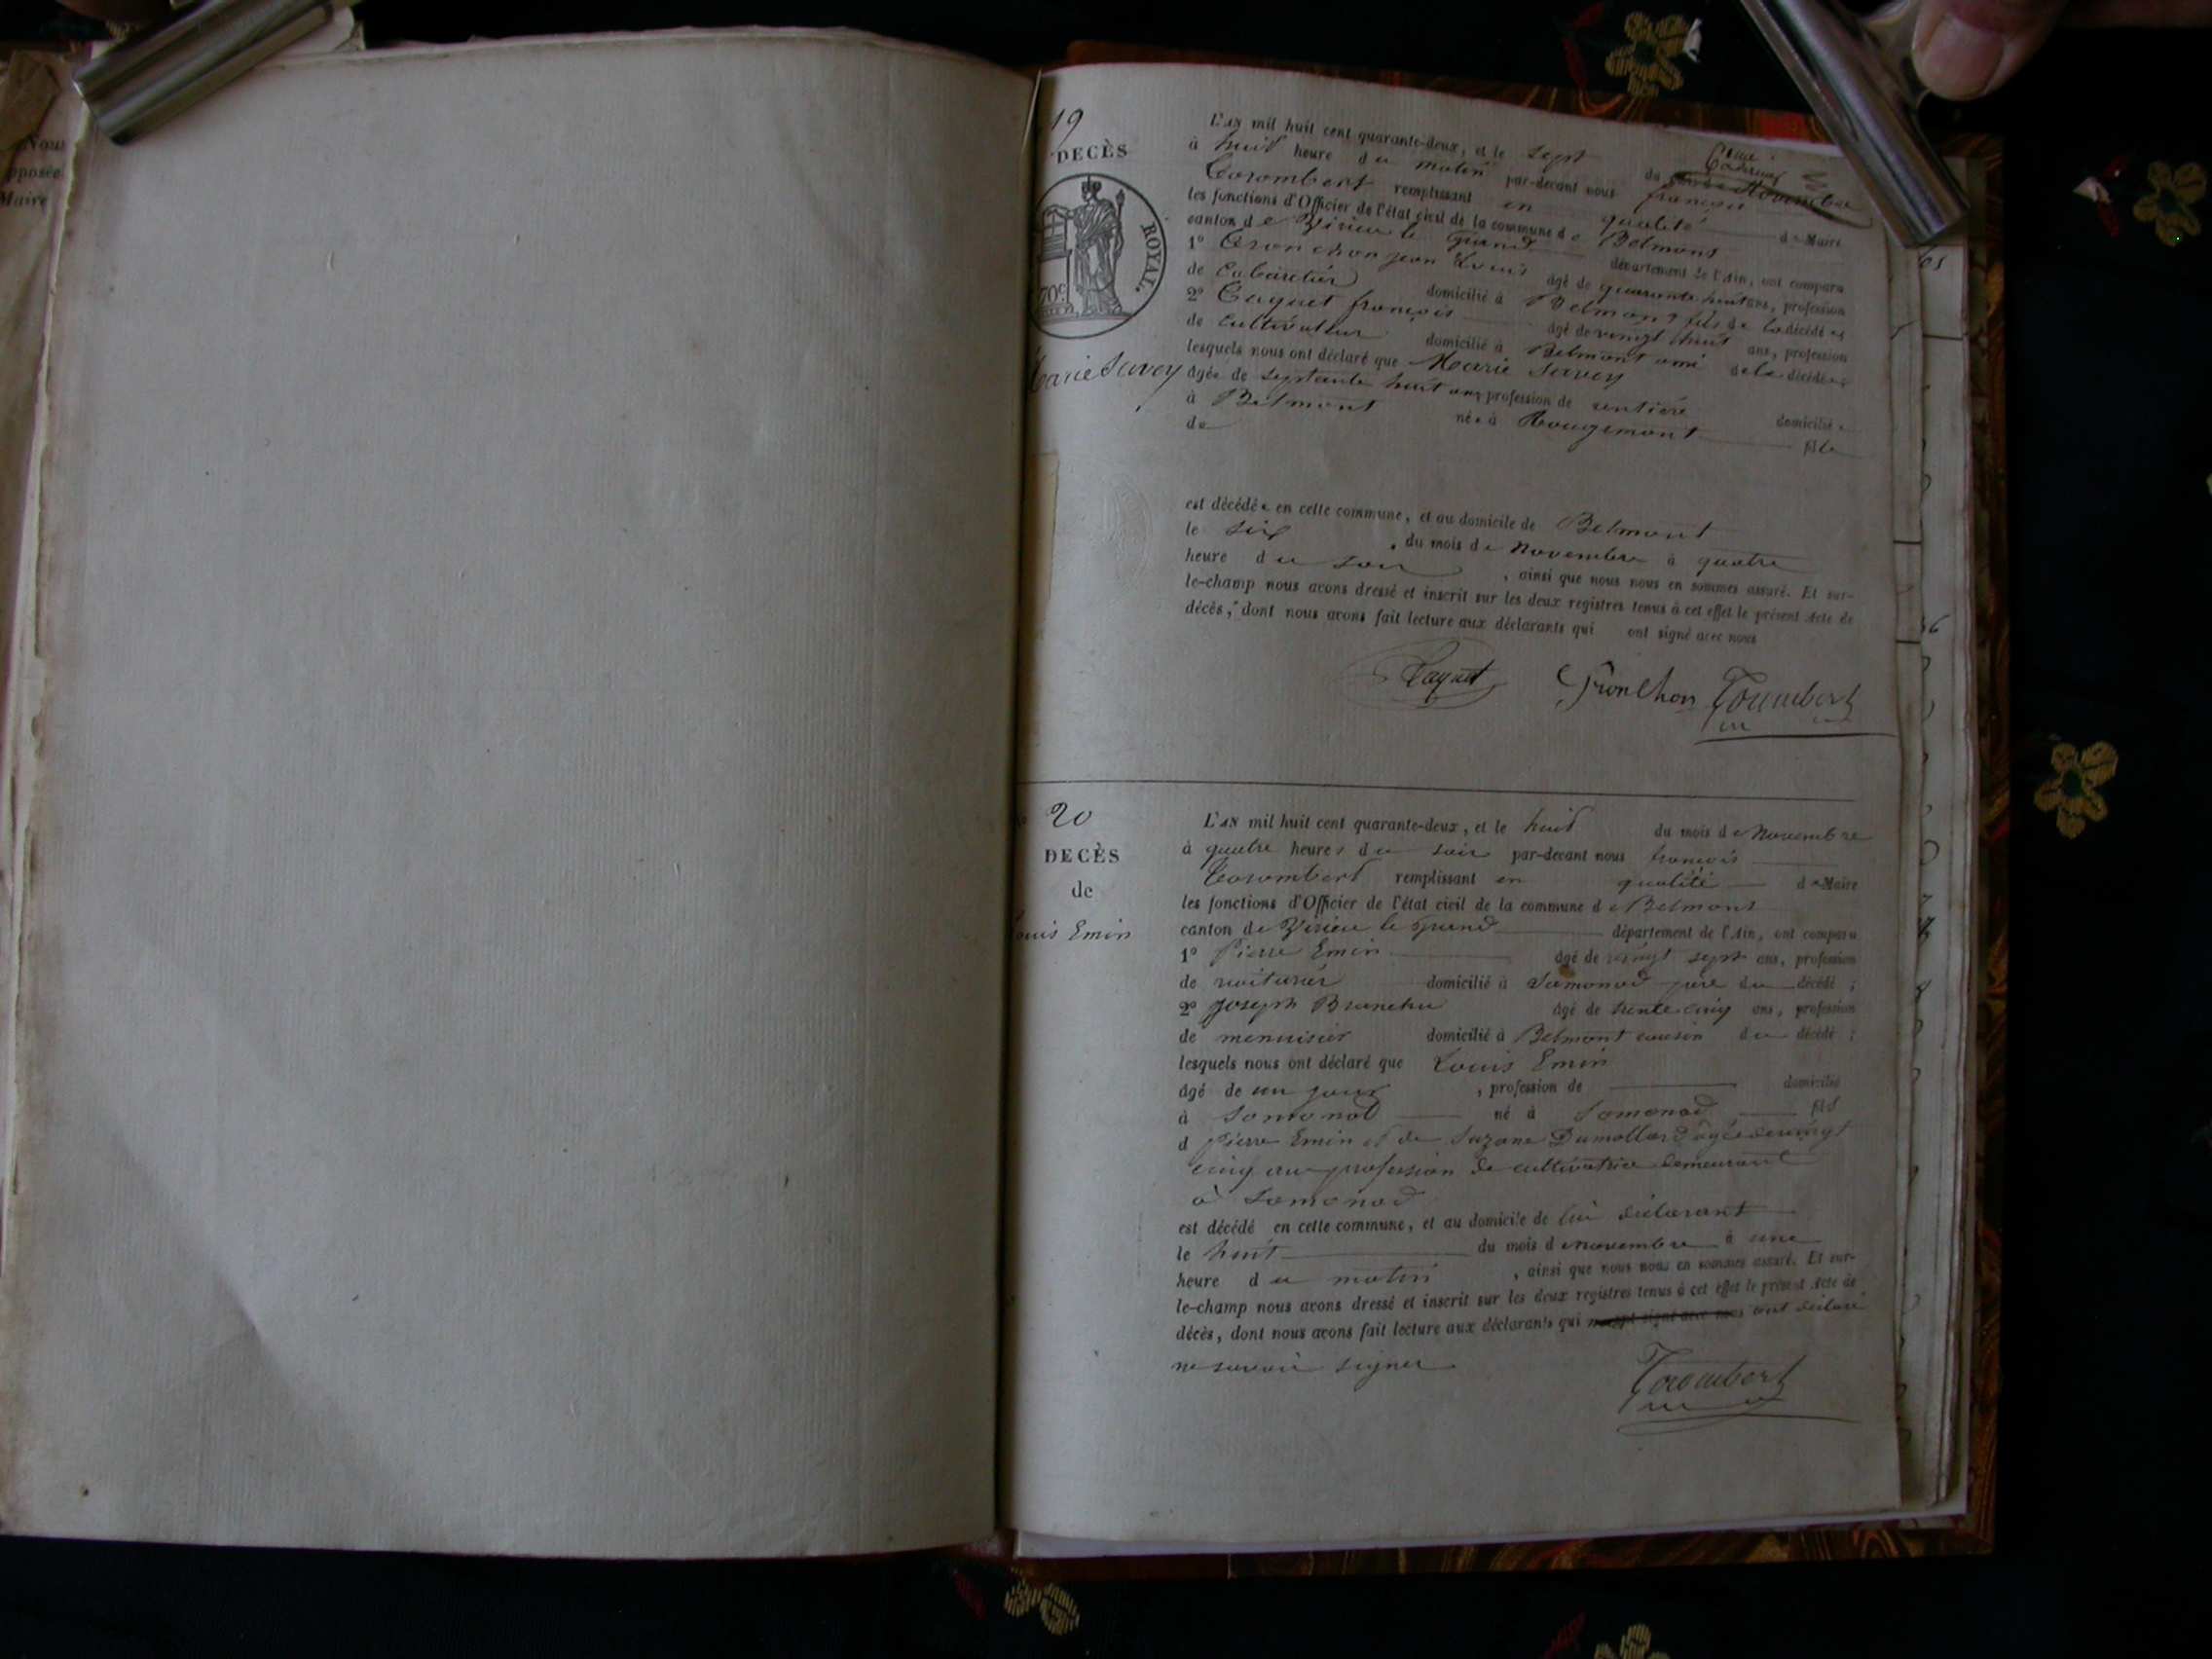 Nous
pposée
Maire
19
DECÈS
ROYAL.
70c
Marie Savey
L'AN mil huit cent quarante-deux, et le sept du mois de Novembre
à huit heure du matin par-devant nous françois
Corombert remplissant en qualité de Maire
les fonctions d'Officier de l'état civil de la commune de Belmont
canton de Virieu le grand département de l'Ain, ont comparu
1° Gronchon jean Louis âgé de quarante huit ans, profession
de Cabaretier domicilié à Belmont fils de la décédée
2° Caquet françois âgé de vingt huit ans, profession
de Cultivateur domicilié à Belmont ami de la décédée
lesquels nous ont déclaré que Marie Savey
âgée de septante huit ans profession de rentière domiciliée
à Belmont née à Rougemont fille
de
est décédée en cette commune, et au domicile de Belmont
le six du mois de Novembre à quatre
heure du soir, ainsi que nous nous en sommes assuré. Et sur-
le-champ nous avons dressé et inscrit sur les deux registres tenus à cet effet le présent Acte de
décès, dont nous avons fait lecture aux déclarants qui ont signé avec nous
Caquet Gronchon Corombert
20
DECÈS
de
Louis Emin
L'AN mil huit cent quarante-deux, et le huit du mois de Novembre
à quatre heures du soir par-devant nous françois
Corombert remplissant en qualité de Maire
les fonctions d'Officier de l'état civil de la commune de Belmont
canton de Virieu le grand département de l'Ain, ont comparu
1° Pierre Emin âgé de vingt sept ans, profession
de voiturier domicilié à Samonod père du décédé ;
2° Joseph Brunchu âgé de trente cinq ans, profession
de menuisier domicilié à Belmont cousin du décédé ;
lesquels nous ont déclaré que Louis Emin
âgé de un jour, profession de domicilié
à Samonod né à Samonod fils
d Pierre Emin et de Suzane Dumollard agée de vingt
cinq ans profession de cultivatrice demeurant
à Samonod
est décédé en cette commune, et au domicile de lui déclarant
le huit du mois de novembre à une
heure du matin, ainsi que nous nous en sommes assuré. Et sur-
le-champ nous avons dressé et inscrit sur les deux registres tenus à cet effet le présent Acte de
décès, dont nous avons fait lecture aux déclarants qui ont déclaré
ne savoir signer
Corombert